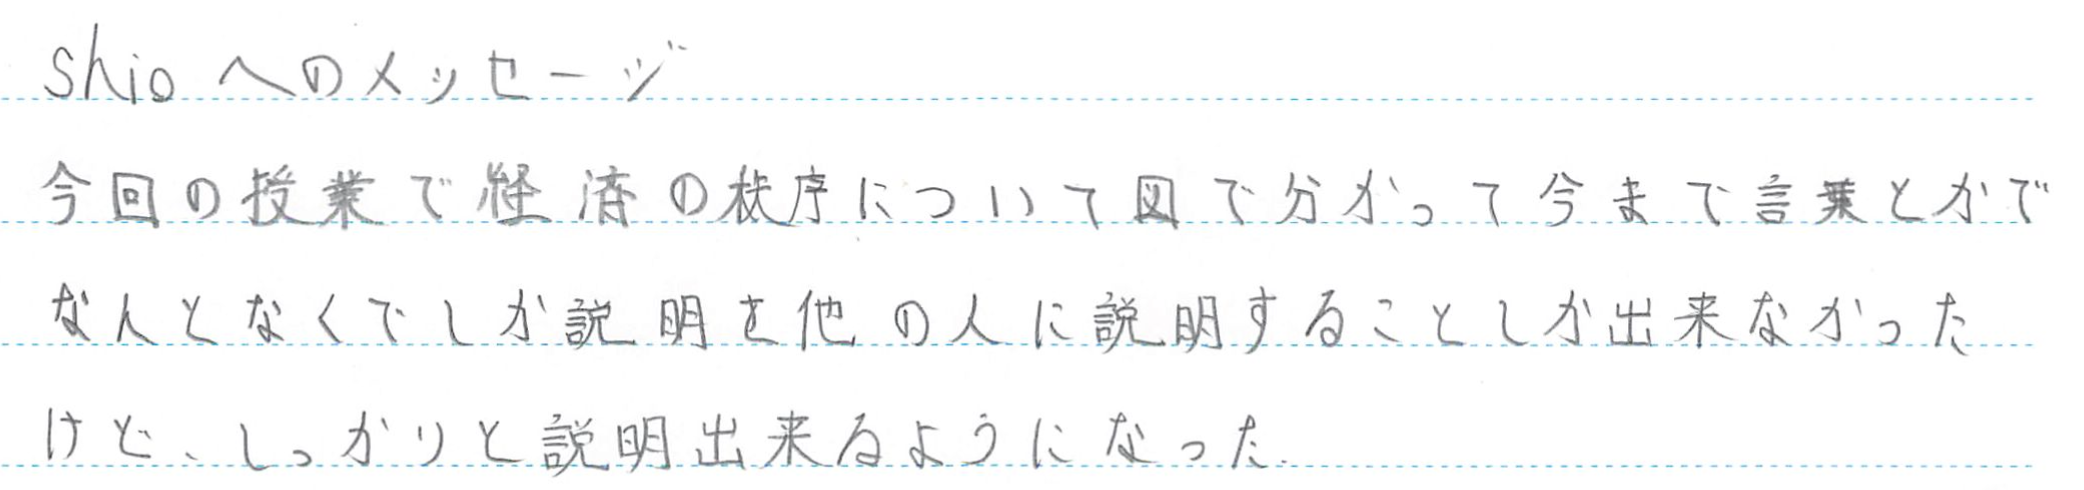 shioへのメッセージ
今回の授業で経済の秩序について図で分かって今まで言葉とかで
なんとなくでしか説明を他の人に説明することしか出来なかった
けど、しっかりと説明出来るようになった.